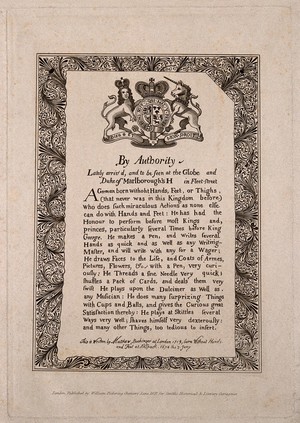 By Authority
Lately arriv'd, and to be seen at the Globe and
Duke of Marlborough's H in Fleet-street
A German born without Hands, Feet, or Thighs,
(that never was in this Kingdom before)
Who does such miraculous Actions as none else
can do with Hands and Feet: He has had the
Honour to perform before most Kings and
princes, particularly several Times before King
George. He makes a Pen, and writes several
Hands as quick and as well as any Writing-
Master, and will write with any for a Wager;
He draws Faces to the Life, and Coats of Armes,
Pictures, Flowers, &c. with a Pen, very curi-
ously; He Threads a fine Needle Very quick;
shuffles a Pack of Cards, and deals them very
swift He plays upon the Dulcimer as Well as
any Musician; He does many surprizing Things
with Cups and Balls, and gives the Curious great
Satisfaction thereby: He plays at Skittles several
Ways very well; shaves himself very dexterously;
and many Other Things, too tedious to insert.
This is Written by Matthew Buchinger at London Born Without Hands
and Feet at
London, Published by William Richardson